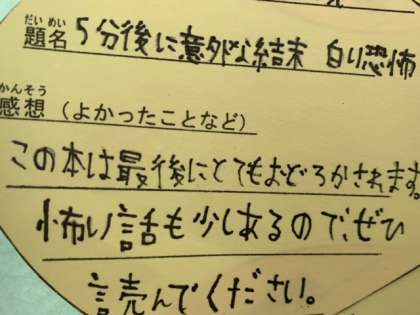 だい めい
題名 5分後に意外な結末 白い恐怖
かんそう
感想（よかったことなど）
この本は最後にとてもおどろかされます。
怖い話も少しあるので、ぜひ
読んでください。